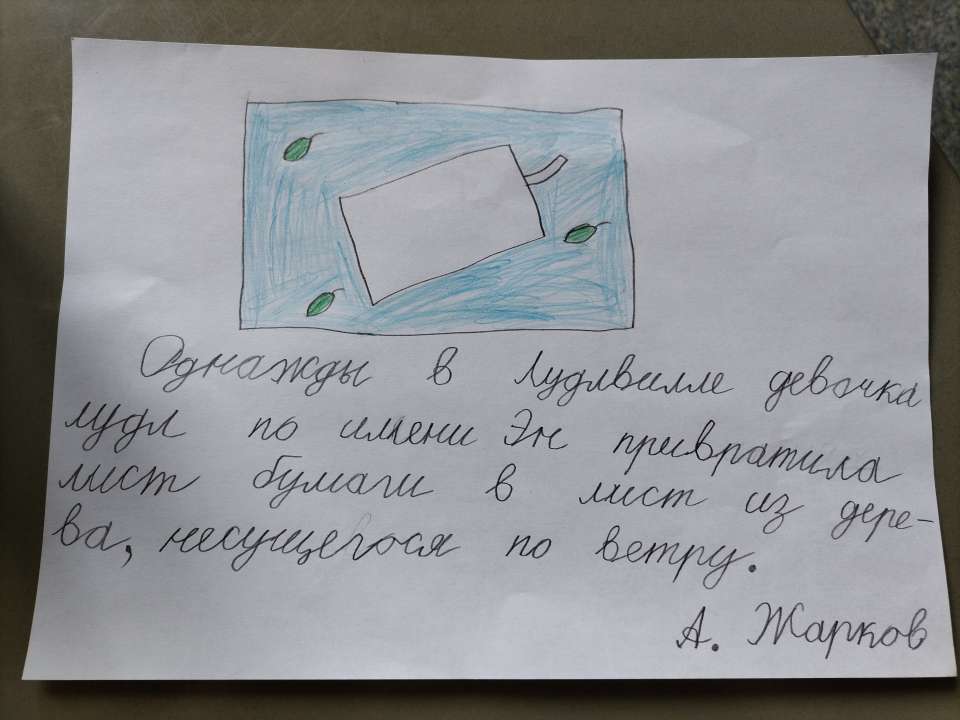 Однажды в Лудлвилле девочка
лудл по имени Эн привратила
лист бумаги в лист из дере-
ва, несущегося по ветру.
А. Жарков